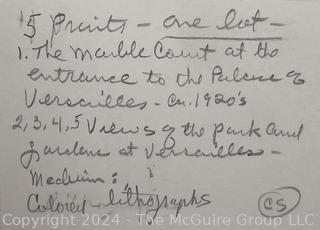 5 Prints - one lot -
1. The Marble Court at the
entrance to the Palace of
Versailles - Ca. 1920's
2, 3, 4, 5 Views of the park and
gardens at Versailles -
Medium:
Colored - lithographs
CS
Copyright 2024 - The McGuire Group LLC